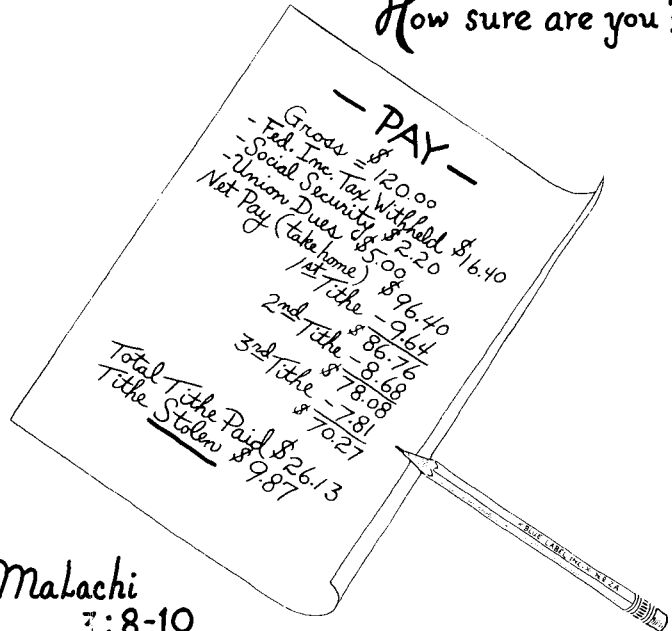 How sure are you?
— PAY —
Gross = $120.00
- Fed. Inc. Tax Withheld $16.40
- Social Security $2.20
- Union Dues $5.00
Net Pay (take home) $96.40
1st Tithe -9.64
$86.76
2nd Tithe -8.68
$78.08
3rd Tithe -7.81
$70.27
Total Tithe Paid $26.13
Tithe Stolen $9.87
BLUE LABEL INC.
Malachi
:8-10